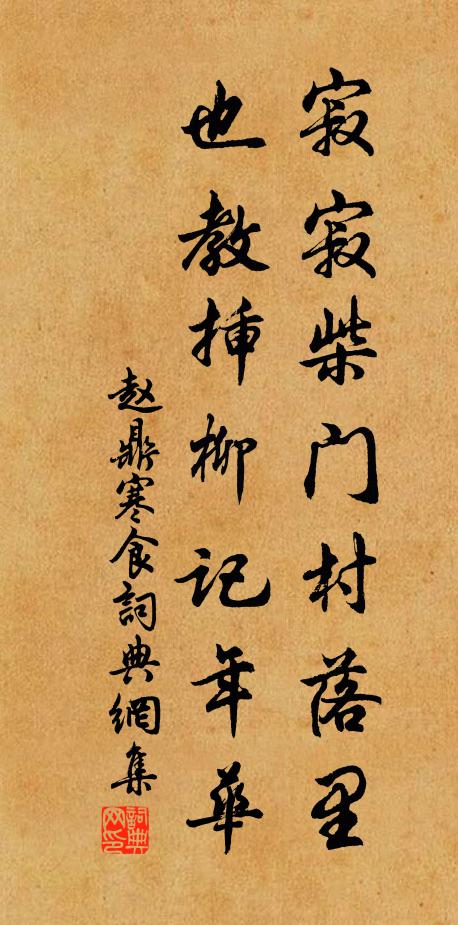 寂寂柴门村落里
也教揷柳记年華
赵鼎寒食詞典網集
詞典网印